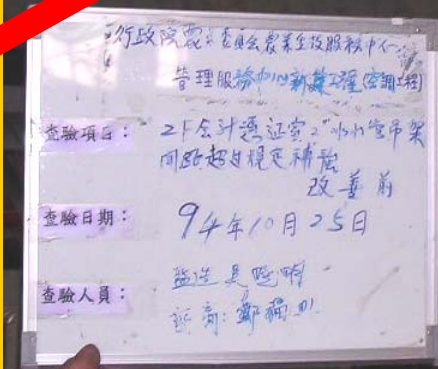 行政院農業委員會農業生技服務中心
管理服務中心新建工程(空調工程)
查驗項目： 2F会計憑証室2"冰水管吊架
間距超过規定補強
改善前
查驗日期： 94年10月25日
查驗人員： 監造